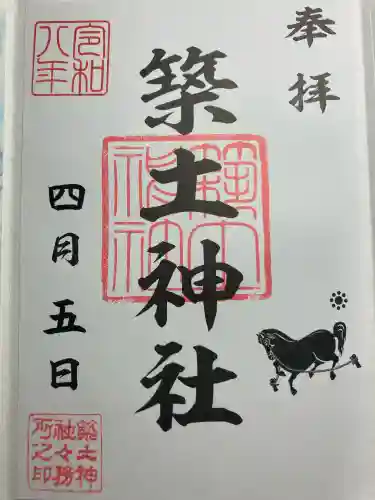 奉拝
築土神社
令和八年
四月五日
築土神社
築土神社々務所之印